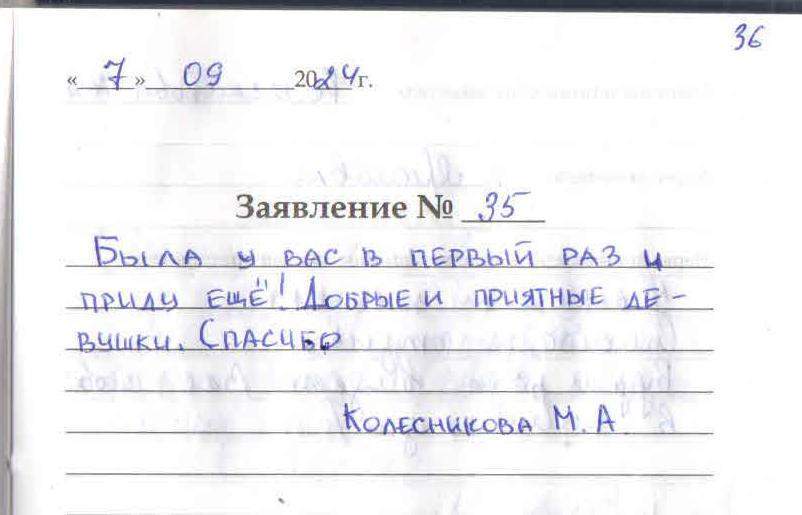 36
«7» 09 2024г.
Заявление № 35
Была у вас в первый раз и
приду ещё! Добрые и приятные де-
вушки. Спасибо
Колесникова М.А.